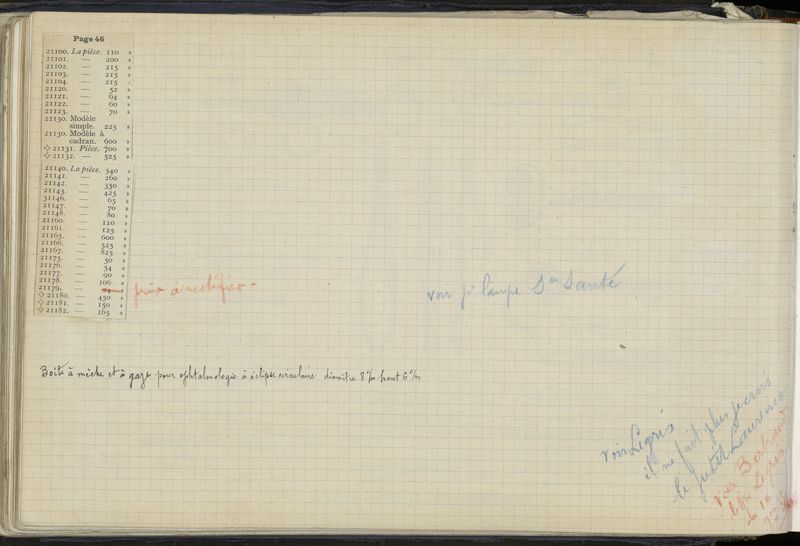 Page 46
21100. La pièce. 110 »
21101. — 200 »
21102. — 215 »
21103. — 215 »
21104. — 215 »
21120. — 52 »
21121. — 64 »
21122. — 60 »
21123. — 70 »
21130. Modèle
simple. 225 »
21130. Modèle à
cadran. 600 »
21131. Pièce. 700 »
21132. — 325 »
21140. La pièce. 540 »
21141. — 260 »
21142. — 350 »
21143. — 425 »
31146. — 65 »
21147. — 70 »
21148. — 80 »
21160. — 110 »
21161. — 125 »
21165. — 600 »
21166. — 525 »
21167. — 825 »
21175. — 50 »
21176. — 54 »
21177. — 90 »
21178. — 106 »
21179. —
prix à rectifier =
21180. — 450 »
21181. — 150 »
21182. — 165 »
voir pr lampe Sn Santé
Boîte à mèche et à gaze pour ophtalmologie à éclipse circulaire diamètre 8 c/m haut 6 c/m
voir Legris
il ne fait plus je crois
le petit Laurence
voir
Legris
du 10